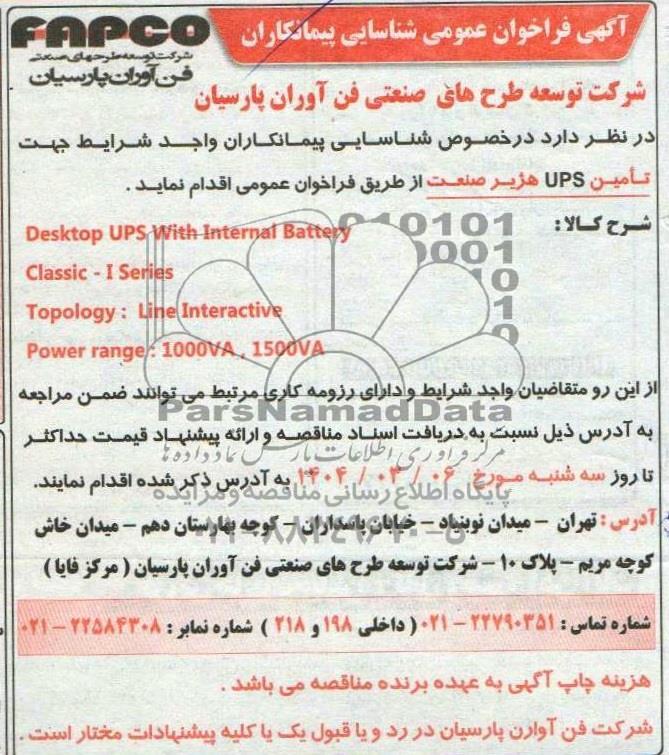 آگهی فراخوان عمومی شناسایی پیمانکاران
FAPCO
شرکت توسعه طرحهای صنعتی
فن آوران پارسیان
شرکت توسعه طرح های صنعتی فن آوران پارسیان
در نظر دارد درخصوص شناسایی پیمانکاران واجد شرایط جهت
تأمین UPS هژیر صنعت از طریق فراخوان عمومی اقدام نماید .
شرح کالا :
Desktop UPS With Internal Battery
Classic - I Series
Topology : Line Interactive
Power range : 1000VA , 1500VA
از این رو متقاضیان واجد شرایط و دارای رزومه کاری مرتبط می توانند ضمن مراجعه
ParsNamadData
به آدرس ذیل نسبت به دریافت اسناد مناقصه و ارائه پیشنهاد قیمت حداکثر
مرکز فرآوری اطلاعات پارس نماد داده ها
تا روز سه شنبه مورخ ۰۶ / ۰۳ / ۱۴۰۴ به آدرس ذکر شده اقدام نمایند.
پایگاه اطلاع رسانی مناقصه و مزایده
آدرس : تهران – میدان نوبنیاد – خیابان پاسداران – کوچه بهارستان دهم – میدان خاش
کوچه مریم – پلاک ۱۰ – شرکت توسعه طرح های صنعتی فن آوران پارسیان ( مرکز فاپا )
شماره تماس : ۲۲۷۹۰۳۵۱ – ۰۲۱ ( داخلی ۱۹۸ و ۲۱۸ ) شماره نمابر : ۲۲۵۸۴۳۰۸ – ۰۲۱
هزینه چاپ آگهی به عهده برنده مناقصه می باشد .
شرکت فن آوارن پارسیان در رد و یا قبول یک یا کلیه پیشنهادات مختار است .